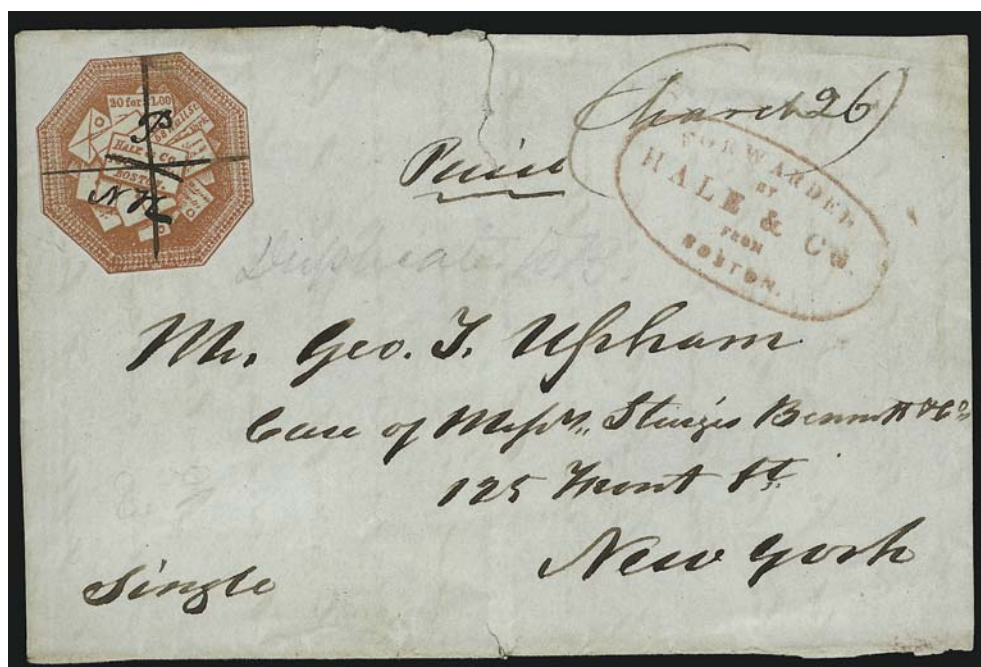 20 for $1.00
HALE & CO.
BOSTON.
March 26
Paid
FORWARDED
BY
HALE & CO.
FROM
BOSTON.
Mr. Geo. T. Upham
Care of Messrs. Sturgis Bennett & Co
125 Front St.
New York
Single